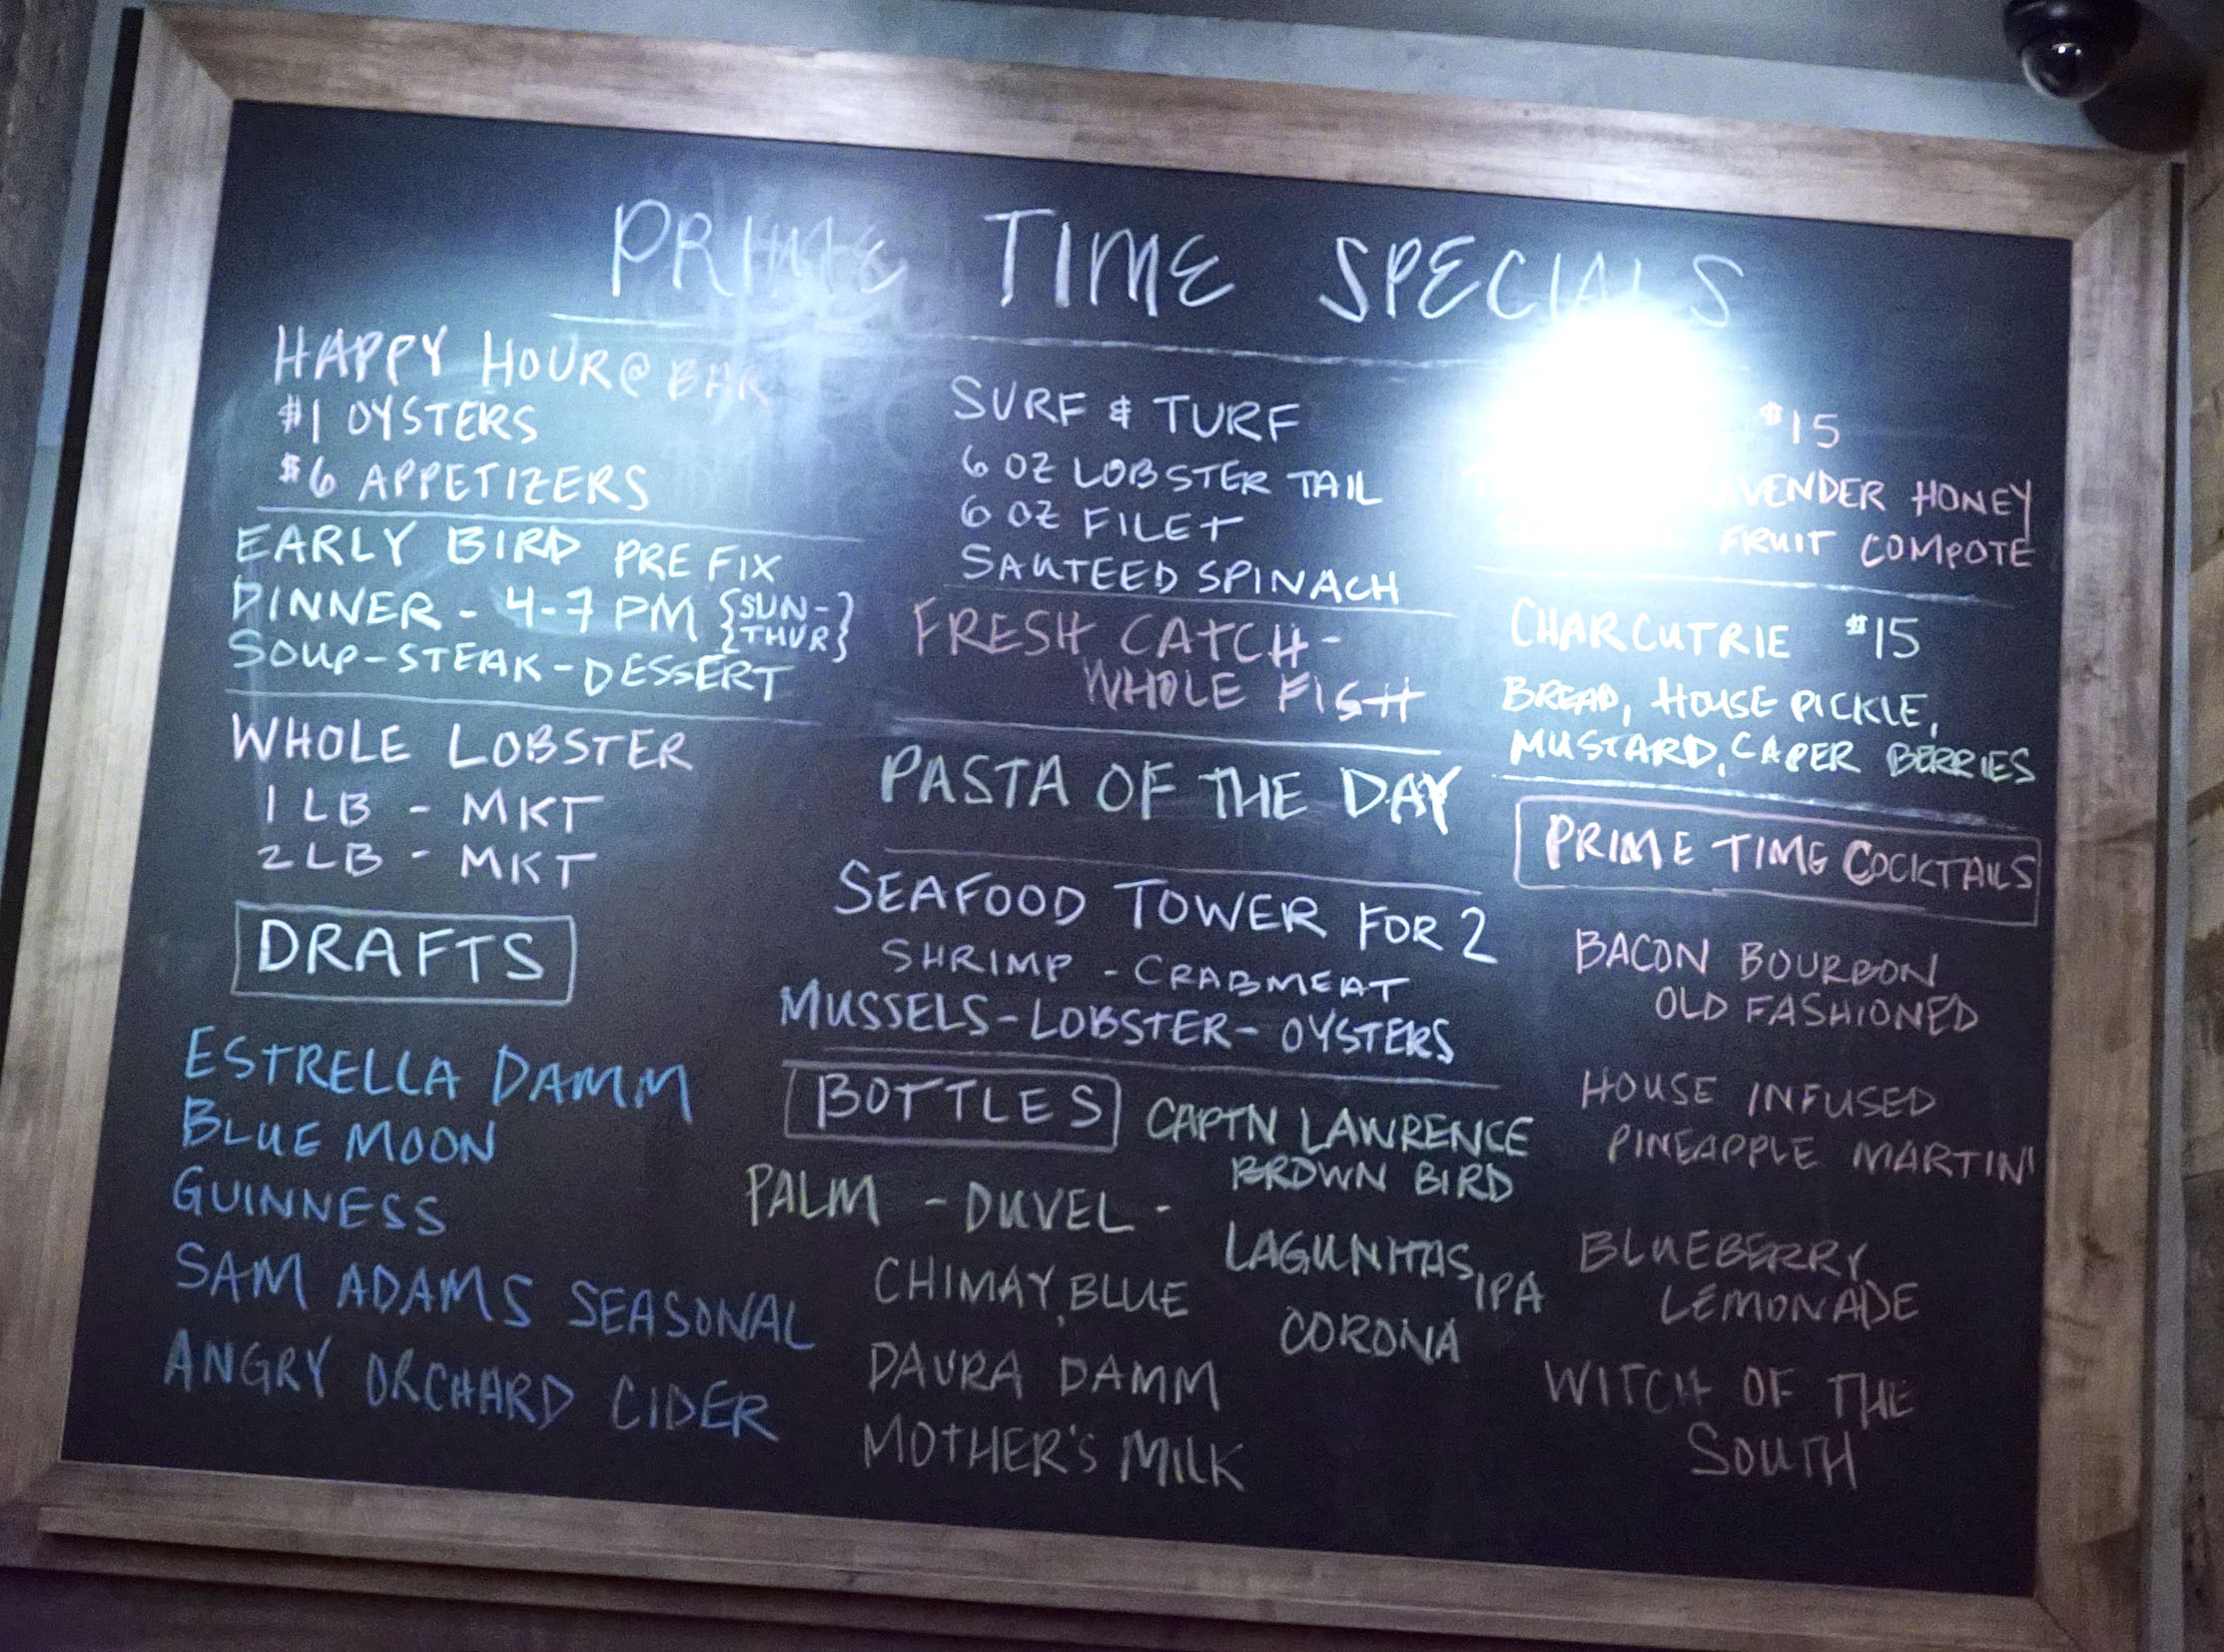 PRIME TIME SPECIALS
HAPPY HOUR @ BAR
$1 OYSTERS
$6 APPETIZERS
EARLY BIRD PRE FIX
DINNER - 4-7 PM {SUN-}
{THUR}
SOUP-STEAK-DESSERT
WHOLE LOBSTER
1 LB - MKT
2 LB - MKT
DRAFTS
ESTRELLA DAMM
BLUE MOON
GUINNESS
SAM ADAMS SEASONAL
ANGRY ORCHARD CIDER
SURF & TURF
6 OZ LOBSTER TAIL
6 OZ FILET
SAUTEED SPINACH
FRESH CATCH -
WHOLE FISH
PASTA OF THE DAY
SEAFOOD TOWER FOR 2
SHRIMP - CRABMEAT
MUSSELS - LOBSTER - OYSTERS
BOTTLES
PALM - DUVEL -
CHIMAY, BLUE
DAURA DAMM
MOTHER'S MILK
CAPTN LAWRENCE
BROWN BIRD
LAGUNITAS, IPA
CORONA
$15
HONEY
FRUIT COMPOTE
CHARCUTRIE $15
BREAD, HOUSE PICKLE,
MUSTARD, CAPER BERRIES
PRIME TIME COCKTAILS
BACON BOURBON
OLD FASHIONED
HOUSE INFUSED
PINEAPPLE MARTINI
BLUEBERRY
LEMONADE
WITCH OF THE
SOUTH